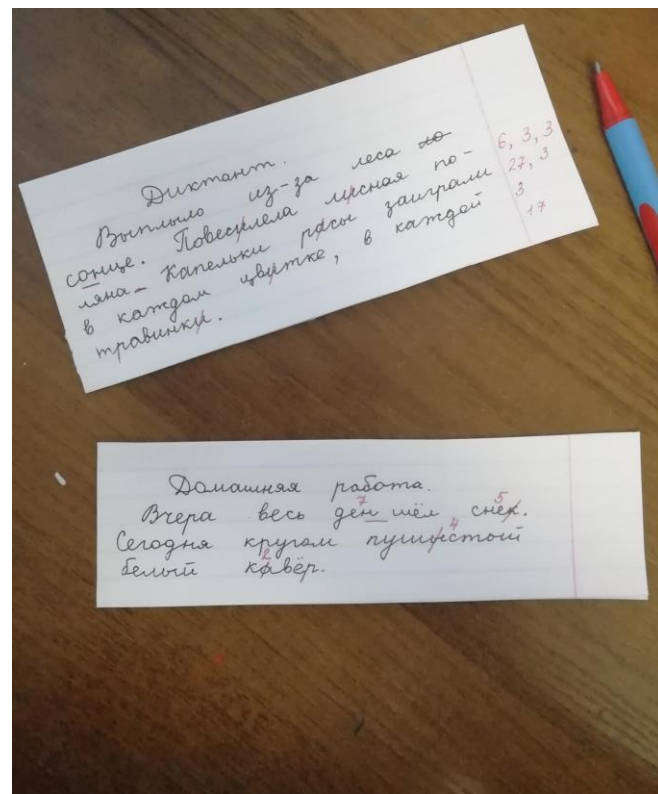 Диктант.
Выплыло из-за леса ло 6, 3, 3
сонце. Повесилела лисная по- 27, 3
ляна. Капельки расы заиграли 3
в каждом цвитке, в каждой 17
травинки.
Домашняя работа.
Вчера весь ден шёл снек. 7 5
Сегодня кругом пушистый 4
белый кавёр. 2